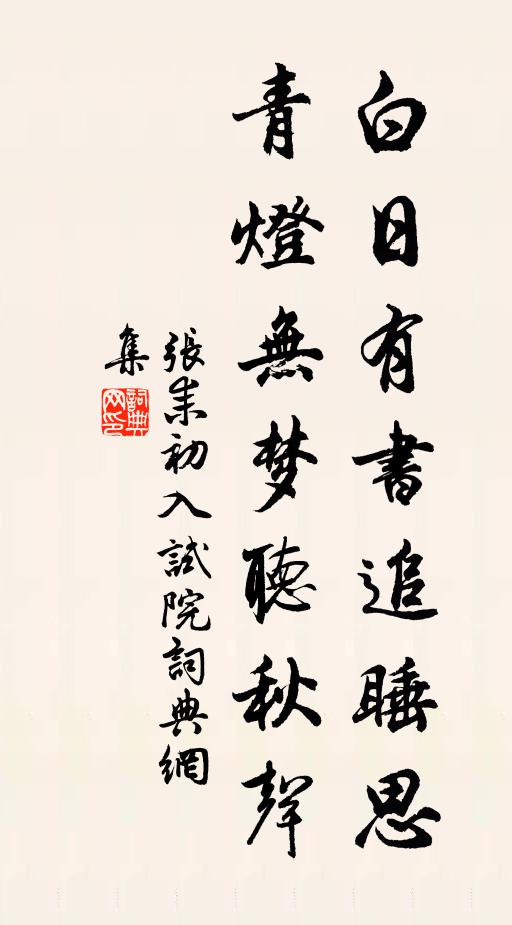 白日有書追睡思
青燈無梦聽秋聲
張耒初入試院詞典網
集
詞典
网印